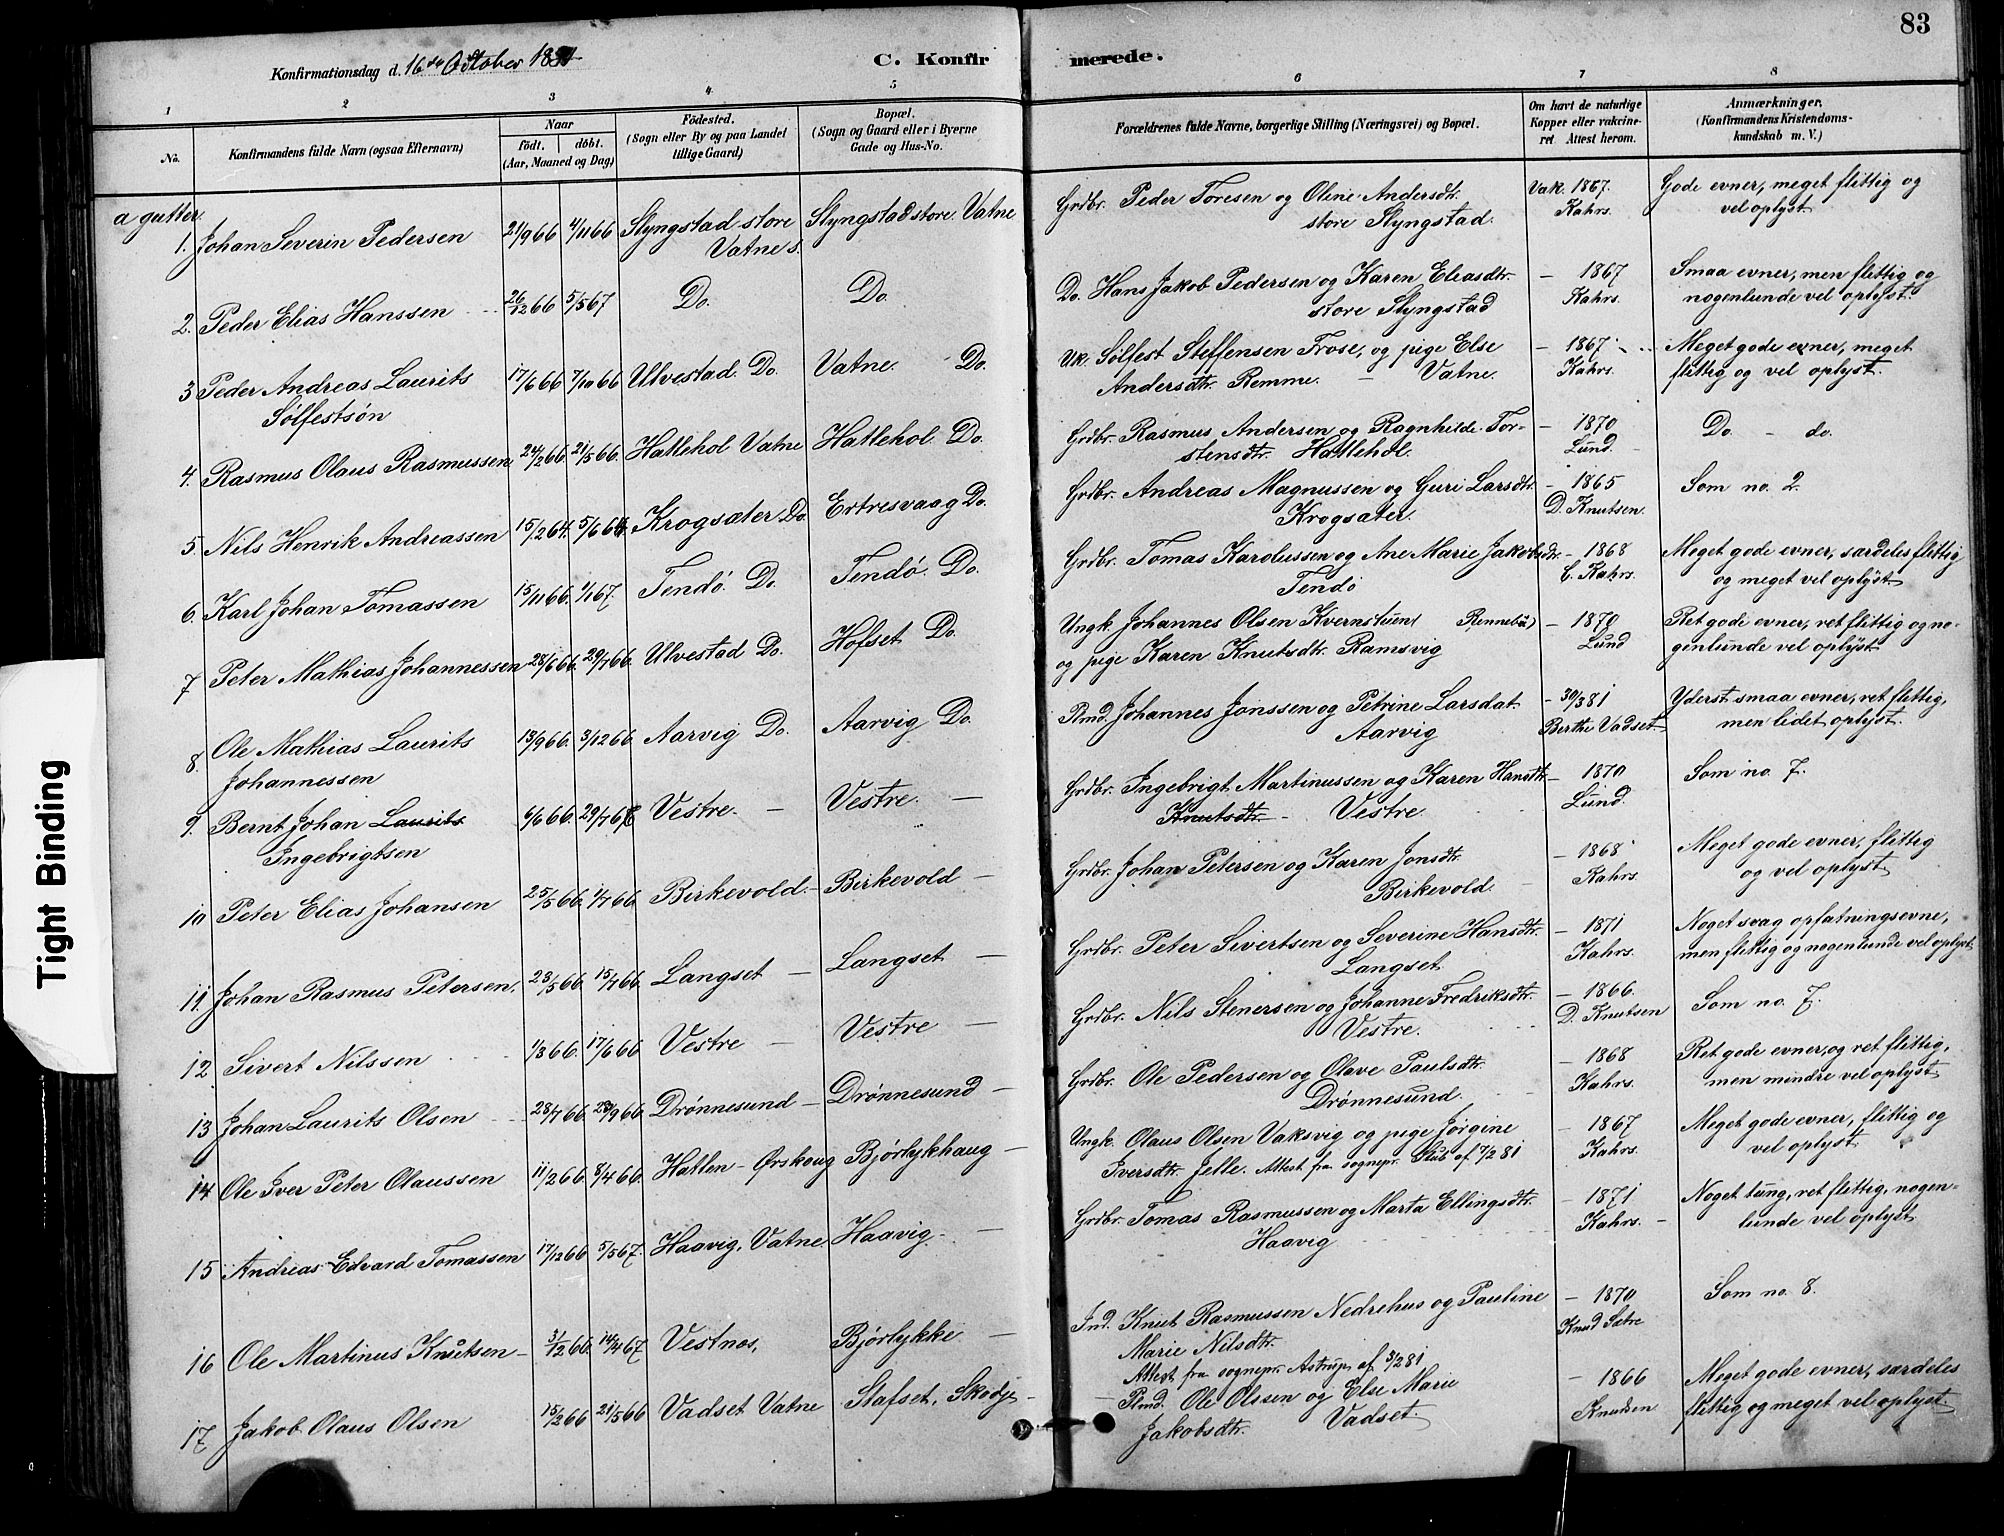 83
Konfirmationsdag d. 16de October 1881
C. Konfirmerede.
1 2 3 4 5 6 7 8
No.
Konfirmandens fulde Navn (ogsaa Efternavn)
Naar
födt. döbt.
(Aar, Maaned og Dag)
Födested.
(Sogn eller By og paa Landet
tillige Gaard)
Bopæl.
(Sogn og Gaard eller i Byerne
Gade og Hus-No.
Forældrenes fulde Navne, borgerlige Stilling (Næringsvei) og Bopæl.
Om havt de naturlige
Kopper eller vakcine-
ret. Attest herom.
Anmærkninger.
(Konfirmandens Kristendoms-
kundskab m. V.)
a gutter.
1. Johan Severin Pedersen 21/9 66 4/11 66 Slyngstad store Slyngstad store Vatne Grdbr. Peder Toresen og Oline Andersdtr. Vak. 1867. Gode evner, meget flittig og
Vatne s. store Slyngstad. Kahrs. vel oplyst
2. Peder Elias Hanssen 26/12 66 5/5 67 Do. Do. Do. Hans Jakob Pedersen og Karen Eliasdtr. – 1867 Smaa evner, men flittig og
store Slyngstad Kahrs. nogenlunde vel oplyst.
3 Peder Andreas Laurits 17/6 66 7/10 66 Ulvestad. Do. Vatne. Do. Uk. Sølfest Steffensen Frose, og pige Else – 1867 Meget gode evner, meget
Sølfestsøn Andersdtr. Remme. – Vatne. Kahrs. flittig og vel oplyst.
4. Rasmus Olaus Rasmussen 24/2 66. 21/5 66. Hatlehol Vatne Hatlehol Do. Grdbr. Rasmus Andersen og Ragnhilde Tor- – 1870 Do. – do.
stensdtr. Hatlehol. Lund.
5. Nils Henrik Andreassen 15/2 64. 5/6 64 Krogsæter Do. Ertresvaag Do. Grdbr. Andreas Magnussen og Guri Larsdtr. – 1865 Som no. 2.
Krogsæter. D. Knutsen.
6. Karl Johan Tomassen 15/11 66. 1/1 67. Tendö. Do. Tendö. Do. Grdbr. Tomas Karolussen og Ane Marie Jakobsdtr. – 1868 Meget gode evner, særdeles flittig
Tendö C. Kahrs. og meget vel oplyst
7 Peter Mathias Johannessen 28/6 66. 29/7 66. Ulvestad Do. Hofset Do. Ungk. Johannes Olsen Kvernstuen (Rennebu) – 1870 Ret gode evner, ret flittig og no-
og pige Karen Knutsdtr. Ramsvig Lund genlunde vel oplyst
8. Ole Mathias Laurits 13/9 66. 3/12 66 Aarvig Do. Aarvig Do. Pmd. Johannes Jonssen og Petrine Larsdat. – 30/3 81 Yderst smaa evner, ret flittig,
Johannessen Aarvig Berthe Vadset. men lidet oplyst.
9. Bernt Johan Laurits 6/6 66. 29/7 66 Vestre. – Vestre. – Grdbr. Ingebrigt Martinussen og Karen Hansdtr. – 1870 Som no. 7.
Ingebrigtsen Knutsdtr. – Vestre. Lund.
10 Peter Elias Johansen 25/5 66. 1/7 66. Birkevold. – Birkevold – Grdbr. Johan Petersen og Karen Jonsdtr. – 1868 Meget gode evner, flittig
Birkevold. Kahrs. og vel oplyst
11. Johan Rasmus Petersen. 23/5 66. 15/7 66. Langset – Langset – Grdbr. Peter Sivertsen og Severine Hansdtr. – 1871 Noget svag opfatningsevne,
Langset. Kahrs. men flittig og nogenlunde vel oplyst.
12 Sivert Nilssen 1/3 66. 17/6 66 Vestre – Vestre – Grdbr. Nils Stenersen og Johanne Fredriksdtr. – 1866. Som no. 7.
Vestre. D. Knutsen
13 Johan Laurits Olsen 28/7 66 23/9 66 Drönnesund – Drönnesund – Grdbr. Ole Pedersen og Olave Paulsdtr. – 1868 Ret gode evner, og ret flittig,
Drönnesund. Kahrs. men mindre vel oplyst
14. Ole Iver Peter Olaussen 11/2 66. 8/4 66. Hatlen – Ørskoug Bjørlykhaug – Ungk. Olaus Olsen Vaksvig og pige Jørgine – 1867 Meget gode evner, flittig og
Iversdtr. Jelle. Attest fra sognepr. Stub af 17/2 81 Kahrs. vel oplyst
15 Andreas Edvard Tomassen 17/12 66 5/5 67. Haavig, Vatne. Haavig. – Grdbr. Tomas Rasmussen og Marta Ellingsdtr. – 1871 Noget tung, ret flittig, nogen-
Haavig Kahrs. lunde vel oplyst
16 Ole Martinus Knutsen – 3/12 66. 14/4 67 Vestnes, Bjørlykke – Ind. Knut Rasmussen Nedrehus og Pauline – 1870 Som no. 8.
Marie Nilsdtr. Knud Sætre
Attest fra sognepr. Astrup af 3/2 81
17 Jakob Olaus Olsen 15/2 66 21/5 66 Vadset Vatne Stafset, Skodje – – Pmd. Ole Olssen og Else Marie – 1866 Meget gode evner, særdeles
Jakobsdtr. Vadset. Knudsen flittig og meget vel oplyst
Tight Binding